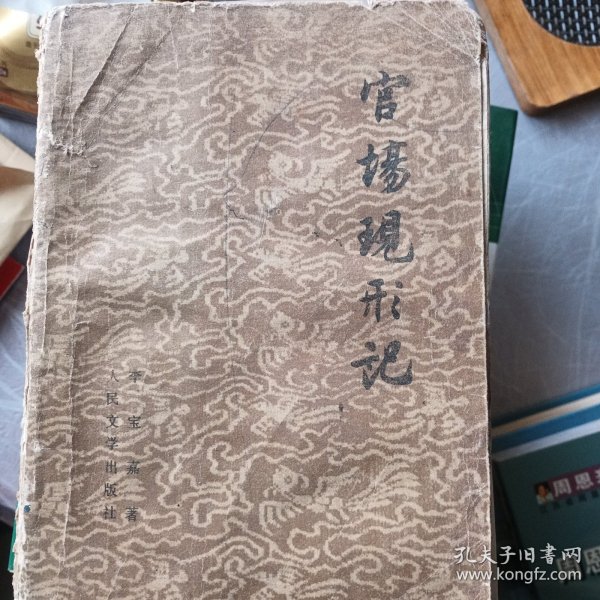 官場現形记
李宝嘉著
人民文学出版社
周恩
恩
孔夫子旧书网
www.kongfz.com